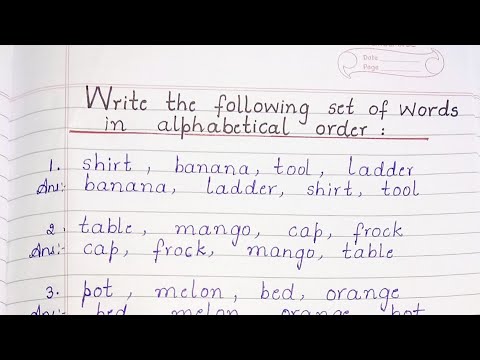 Date
Page
Write the following set of words
in alphabetical order :
1. shirt , banana, tool , ladder
Ans:- banana, ladder, shirt, tool
2. table , mango, cap, frock
Ans:- cap, frock, mango, table
3. pot , melon , bed, orange
Ans:- bed, melon, orange, pot